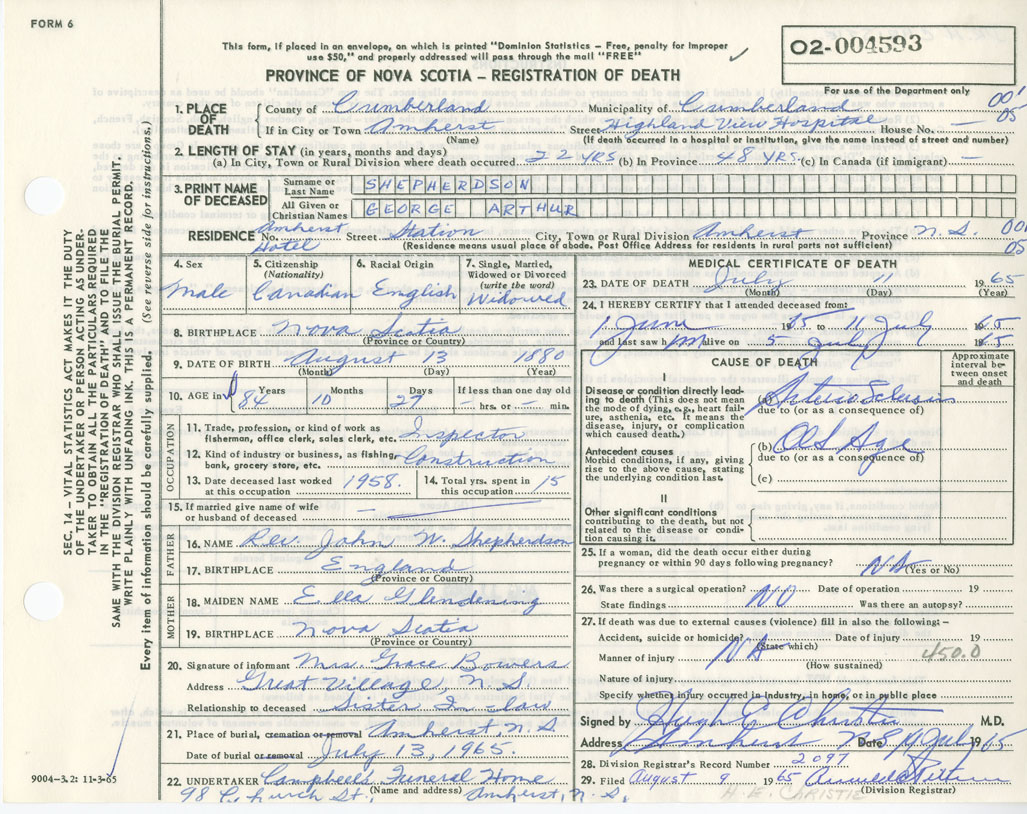 FORM 6
This form, if placed in an envelope, on which is printed "Dominion Statistics – Free, penalty for improper
use $50," and properly addressed will pass through the mail "FREE"
PROVINCE OF NOVA SCOTIA – REGISTRATION OF DEATH
02-004593
For use of the Department only
001
05
1. PLACE OF DEATH
County of Cumberland Municipality of Cumberland
If in City or Town Amherst Street Highland View Hospital House No. —
(Name) (If death occurred in a hospital or institution, give the name instead of street and number)
2. LENGTH OF STAY (in years, months and days)
(a) In City, Town or Rural Division where death occurred 22 YRS (b) In Province 48 YRS. (c) In Canada (if immigrant) —
3. PRINT NAME OF DECEASED
Surname or Last Name SHEPHERDSON
All Given or Christian Names GEORGE ARTHUR
RESIDENCE No. Amherst Hotel Street Station City, Town or Rural Division Amherst Province N.S.
(Residence means usual place of abode. Post Office Address for residents in rural parts not sufficient)
001
05
4. Sex
Male
5. Citizenship
(Nationality)
Canadian
6. Racial Origin
English
7. Single, Married,
Widowed or Divorced
(write the word)
Widowed
8. BIRTHPLACE Nova Scotia
(Province or Country)
9. DATE OF BIRTH August 13 1880
(Month) (Day) (Year)
10. AGE in
Years 84
Months 10
Days 27
If less than one day old
– hrs. or – min.
OCCUPATION
11. Trade, profession or kind of work as
fisherman, office clerk, sales clerk, etc. Inspector
12. Kind of industry or business, as fishing,
bank, grocery store, etc. Construction
13. Date deceased last worked
at this occupation 1958.
14. Total yrs. spent in
this occupation 15
15. If married give name of wife
or husband of deceased –
FATHER
16. NAME Rev. John W. Shepherdson
17. BIRTHPLACE England
(Province or Country)
MOTHER
18. MAIDEN NAME Ella Glendening
19. BIRTHPLACE Nova Scotia
(Province or Country)
20. Signature of informant Mrs. Grace Bowers
Address Great Village, N.S
Relationship to deceased Sister In-law
21. Place of burial, cremation or removal Amherst, N.S.
Date of burial or removal July 13, 1965.
22. UNDERTAKER Campbell's Funeral Home
(Name and address)
98 Church St., Amherst, N.S.
MEDICAL CERTIFICATE OF DEATH
23. DATE OF DEATH July 11 1965
(Month) (Day) (Year)
24. I HEREBY CERTIFY that I attended deceased from:
1 June 1965 to 11 July 1965
and last saw h im alive on 5 July 1965
CAUSE OF DEATH
Approximate
interval be-
tween onset
and death
I
Disease or condition directly lead-
ing to death (This does not mean
the mode of dying, e.g., heart fail-
ure, asthenia, etc. It means the
disease, injury, or complication
which caused death.)
(a) Arterio Sclerosis
due to (or as a consequence of)
Antecedent causes
Morbid conditions, if any, giving
rise to the above cause, stating
the underlying condition last.
(b) Old Age
due to (or as a consequence of)
(c)
II
Other significant conditions
contributing to the death, but not
related to the disease or condi-
tion causing it.
25. If a woman, did the death occur either during
pregnancy or within 90 days following pregnancy? NA
(Yes or No)
26. Was there a surgical operation? NO Date of operation 19
State findings Was there an autopsy?
27. If death was due to external causes (violence) fill in also the following –
Accident, suicide or homicide? NA Date of injury 19
(State which) 450.0
Manner of injury
(How sustained)
Nature of injury
Specify whether injury occurred in industry, in home, or in public place
Signed by Hugh E Christie M.D.
Address Amherst N S Date 14 July 1965
28. Division Registrar's Record Number 2097
29. Filed August 9 1965
(Division Registrar)
H. E. CHRISTIE
SEC. 14 – VITAL STATISTICS ACT MAKES IT THE DUTY
OF THE UNDERTAKER OR PERSON ACTING AS UNDER-
TAKER TO OBTAIN ALL THE PARTICULARS REQUIRED
IN THE "REGISTRATION OF DEATH" AND TO FILE THE
SAME WITH THE DIVISION REGISTRAR WHO SHALL ISSUE THE BURIAL PERMIT.
WRITE PLAINLY WITH UNFADING INK. THIS IS A PERMANENT RECORD.
Every item of information should be carefully supplied. (See reverse side for instructions.)
9004-3.2: 11-3-65